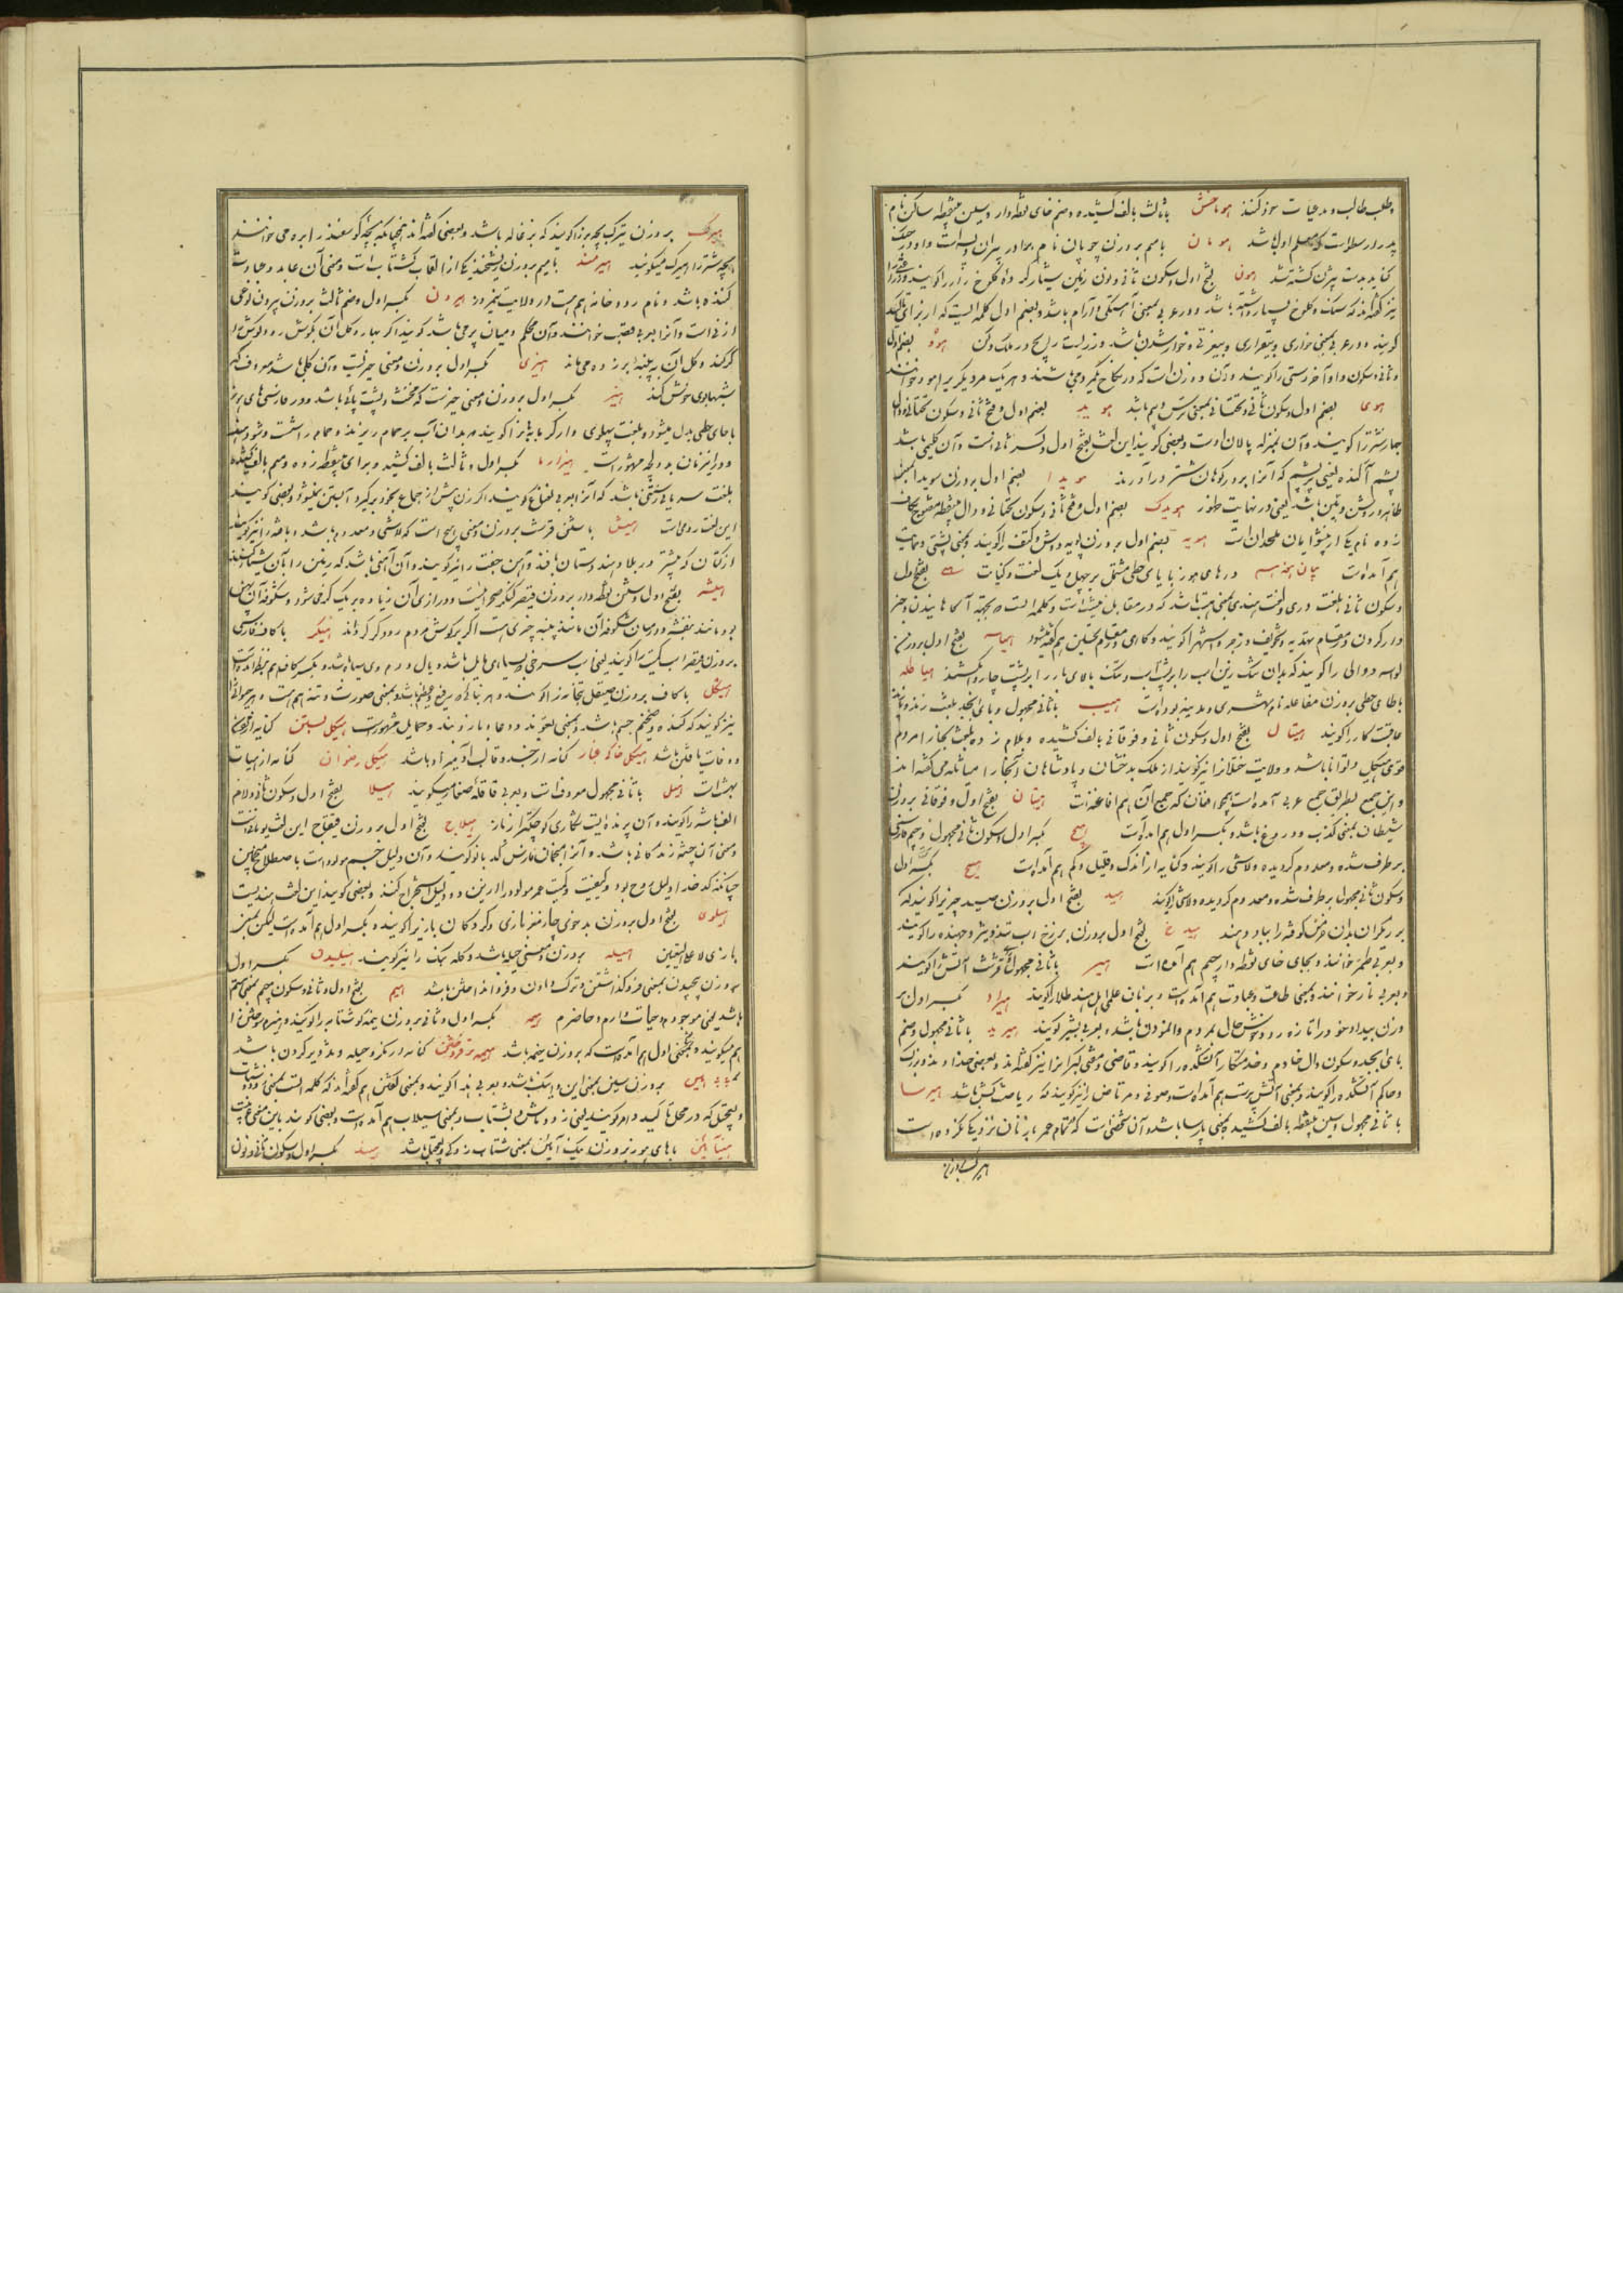 و طلب طالب و مدعیات خود کنند هوماخش با ثالث بالف کشیده و ضم خای نقطه‌دار و سین بی‌نقطه ساکن نام
پدر ارسطو است که معلم اول باشد هومان با میم بروزن چوپان نام برادر پیران ویسه است و او در جنک
کنابد بدست بیژن کشته شد هون بفتح اول و سکون ثانی و نون زمین بسیار
نیز گفته‌اند که سنک و کلوخ بسیار داشته باشد و در عربی بمعنی آهستگی و آرام باشد و بضم اول کلمه ایست که از برای تاکید
گویند و در عربی بمعنی خواری و بیقراری و بیعزتی و خوار شدن باشد هوو بضم اول
و ثانی و سکون واو آخر وسنی را گویند و آن دو زن است که در نکاح یکمرد می‌باشند و هر یک مر دیگریرا هوو خوانند
هوی بضم اول و سکون ثانی و تحتانی بمعنی ترس و بیم باشد هوید بضم اول و فتح ثانی و سکون تحتانی و دال
جهاز شتر را گویند و آن بمنزله پالان اوست و بعضی گویند این لغت بفتح اول و کسر ثانی است و آن گلیمی باشد
پشم آکنده یعنی پر پشم که آنرا بر دور کوهان شتر درآورند هویدا بضم اول بروزن سویدا بمعنی
ظاهر و روشن و مبین باشد یعنی در نهایت ظهور هویدک بضم اول و فتح ثانی و سکون تحتانی و دال بی‌نقطه مفتوح بکاف
زده نام یکی از پیشوایان ملحدان است هویه بضم اول بروزن مویه دوش و کتف را گویند و بمعنی پشتی و حمایت
هم آمده است بیان هیجدهم در های هوز با یای حطی مشتمل بر چهل و یک لغت و کنایت هی بفتح اول
و سکون ثانی بلغت دری و لغت هندی بمعنی هست باشد که در مقابل نیست است و کلمه ایست که بجهة آگاهانیدن و خبر
دار کردن در مقام تهدید و تخویف و زجر و استهزا گویند و گاهی در مقام تحسین هم گفته میشود هیاسه بفتح اول بروزن
دوالی را گویند که بدان تنک زین اسب را بر پشت اسب و تنک بالای بار را بر پشت چاروا کشند هیاطله
با طای حطی بروزن مقاعله نام شهری و مدینه بوده است هیب با ثانی مجهول و بای ابجد بلغت زند و پازند
عاقبت کار را گویند هیتال بفتح اول و سکون ثانی و فوقانی بالف کشیده و بلام زده بلغت بخارا مردم
قوی هیکل و توانا باشد و ولایت ختلان را نیز گویند از ملک بدخشان و پادشاهان آنجا را هیاطله می‌گفته‌اند
و این جمع بطریق جمع عربی آمده است همچو افغان که جمع آن هم افاغنه است هیتان بفتح اول و فوقانی بروزن
شیطان بمعنی کذب و دروغ باشد و بکسر اول هم آمده است هیچ بکسر اول و سکون ثانی مجهول و جیم فارسی
برطرف شده و معدوم گردیده و لاشی را گویند و کنایه از اندک و قلیل و کم هم آمده است هیچ بکسر اول
و سکون ثانی مجهول برطرف شده و معدوم گردیده و لاشی را گویند هید بفتح اول بروزن صید چیزیرا گویند که
برزیگران بدان خرمن کوفته را بباد دهند هیدخ بفتح اول بروزن برزخ اسب تند و تیز و جهنده را گویند
و بعربی طمر خوانند و بجای خای نقطه‌دار جیم هم آمده است هیر با ثانی مجهول و رای قرشت آتش را گویند
و بعربی نار خوانند و بمعنی طاعت و عبادت هم آمده است و بزبان علمی اهل هند طلا را گویند هیراد بکسر اول بر
وزن بیداد خود را تازه‌رو و خوش‌حال بمردم وانمودن باشد و بعربی بشیر گویند هیربد با ثانی مجهول و ضم
بای ابجد و سکون دال خادم و خدمتکار آتشکده را گویند و قاضی و مفتی گبرانرا نیز گفته‌اند و بعضی خداوند و بزرگ
و حاکم آتشکده را گویند و بمعنی آتش‌پرست هم آمده است و صوفی و مرتاض را نیز گویند که ریاضت‌کش باشد هیرسا
با ثانی مجهول و سین بی‌نقطه بالف کشیده بمعنی پارسا باشد و آن شخصی است که تمام عمر با زنان نزدیکی نکرده است
هیرک بروزن
هیرک بروزن زیرک بچه بز را گویند که بزغاله باشد و بعضی گفته‌اند همچنانکه بچه گوسفند را بره می‌خوانند
بچه شتر را هیرک میگویند هیرمند با میم بروزن ریشخند یکی از القاب گشتاسب است و بمعنی آن عابد و عبادت
کننده باشد و نام رودخانه هم هست در ولایت نیمروز هیرون بکسر اول و ضم ثالث بروزن بیرون نوعی
از نی است و آنرا بعربی قصب خوانند و آن محکم و میان پر می‌باشد گویند اگر بهار و گل آن بگوش رود گوش را
کر کند و گل آن به پنبه برزده می‌ماند هیری بکسر اول بروزن و معنی خیریست و آن گلی باشد معروف که
شبها بوی خوش کند هیز بکسر اول بروزن و معنی حیز است که مخنث و پشت پائی باشد و در فارسی های هوز
با حای حطی بدل میشود و بلغت پهلوی دلو گرمابه را گویند که بدان آب بر حمام ریزند
و در این زمان به دولچه مشهور است هیزارما بکسر اول و ثالث بالف کشیده و برای بی‌نقطه زده و میم بالف کشیده
بلغت سریانی رستنی باشد که آنرا بعربی نعناع گویند اگر زن پیش از جماع بخود برگیرد آبستن نمیشود و بعضی گویند
این لغت رومی است هیش با شین قرشت بروزن و معنی هیچ است که لاشی و معدوم باشد و بافته را نیز گویند
از کتان که بیشتر در بلاد هندوستان بافند و آهن جفت را نیز گویند و آن آهنی باشد که زمین را بآن شیار کنند
هیشر بفتح اول و شین نقطه‌دار بروزن قیصر کنگر صحرائیست و درازی آن زیاده بر یک گز می‌شود و شکوفه آن پهن
بود مانند بنفشه و در میان شکوفه آن مانند پنبه چیزی هست اگر بر گوش مردم رود کر گرداند هیکر با کاف فارسی
بروزن قیصر اسب کمیت را گویند یعنی اسب سرخی که بسیاهی مایل باشد و یال و دم وی سیاه باشد و بکسر کاف هم بنظر آمده است
هیکل با کاف بروزن صیقل بتخانه را گویند و هر بنائی که رفیع و عظیم باشد و بمعنی صورت و تنه هم هست و هر حیوان را
نیز گویند که گنده و ضخیم جسم باشد و بمعنی تعویذ و دعا و بازوبند و حمایل مشهور است هیکل سستن کنایه از
وفات یافتن باشد هیکل خاکی غبار کنایه از جسد و قالب آدمیزاد باشد هیکل رضوان کنایه از هشت
بهشت است هیل با ثانی مجهول معروف است و بعربی قاقله صغار میگویند هیلا بفتح اول و سکون ثانی و لام
الف باشه را گویند و آن پرنده ایست شکاری کوچکتر از باز هیلاج بفتح اول بروزن قیقاج این لغت یونانیست
و بمعنی آن چشمه زندگانی باشد و آنرا منجمان فارس کدبانو گویند و آن دلیل جسم مولود است باصطلاح منجمین
چنانکه کدخدا دلیل روح بود و کیفیت و کمیت عمر مولود را از این دو دلیل استخراج کنند و بعضی گویند این لغت هندیست
هیلوی بفتح اول بروزن بدخوی چهارمغز بازی و گردکان بازی را گویند و بکسر اول هم آمده است لیکن بمعنی
بازی لا علی التعیین هیله بروزن و معنی حیله باشد و کله سک را نیز گویند هیلیدن بکسر اول
بر وزن پیچیدن بمعنی فرو گذاشتن و ترک دادن و فرو انداختن باشد هیم بفتح اول و ثانی و سکون میم بمعنی هستم
باشد یعنی موجودم و حیات دارم و حاضرم هیمه بکسر اول و ثانی بروزن نیمه گوشتابه را گویند و هیزم سوختن را
هم میگویند و بمعنی اول هم آمده است که بروزن خیمه باشد هیمه تر فروختن کنایه از مکر و حیله و تزویر کردن باشد
هین بروزن سین بمعنی این و اینک باشد و بعربی هذا گویند و بمعنی گفتن هم گفته‌اند که کلمه ایست بمعنی زود و شتاب
و تعجیل که در محل تاکید و امر گویند یعنی زود باش و بشتاب و بمعنی سیلاب هم آمده است و بعضی گویند باین معنی عربیست
هین آیین با های هوز بروزن نیک آیین بمعنی شتاب‌زدگی و تعجیل باشد هیند بکسر اول و سکون ثانی و نون